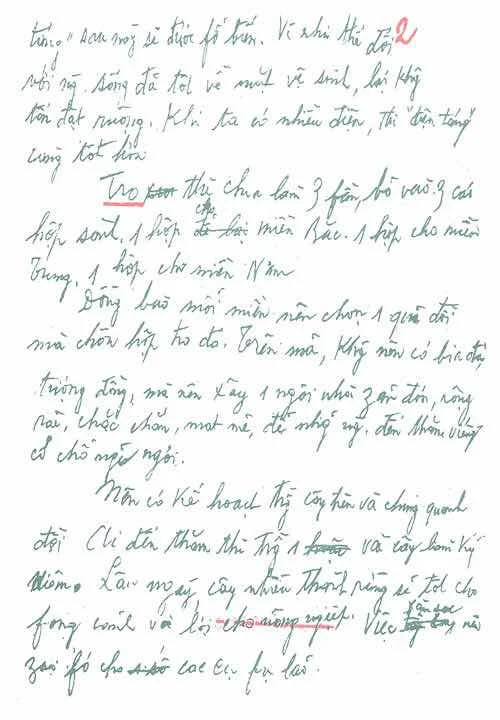 táng" sau này sẽ được fổ biến. Vì như thế đối 2
với ng. sống đã tốt về mặt vệ sinh, lại khg
tốn đất ruộng. Khi ta có nhiều điện, thì "điện táng"
càng tốt hơn
Tro thì chia làm 3 fần, bỏ vào 3 cái
hộp sành. 1 hộp cho miền Bắc. 1 hộp cho miền
Trung, 1 hộp cho miền Nam
Đồng bào mỗi miền nên chọn 1 quả đồi
mà chôn hộp tro đó. Trên mả, khg nên có bia đá,
tượng đồng, mà nên xây 1 ngôi nhà zản đơn, rộng
rãi, chắc chắn, mát mẻ, để nhg ng. đến thăm viếng
có chỗ nghỉ ngơi.
Nên có kế hoạch trg cây trên và chung quanh
đồi. Ai đến thăm thì trg 1 vài cây làm kỷ
niệm. Lâu ngày, cây nhiều thành rừng sẽ tốt cho
fong cảnh và lợi cho nông ngiệp. Việc săn sóc nên
zao fó cho các cụ fụ lão.